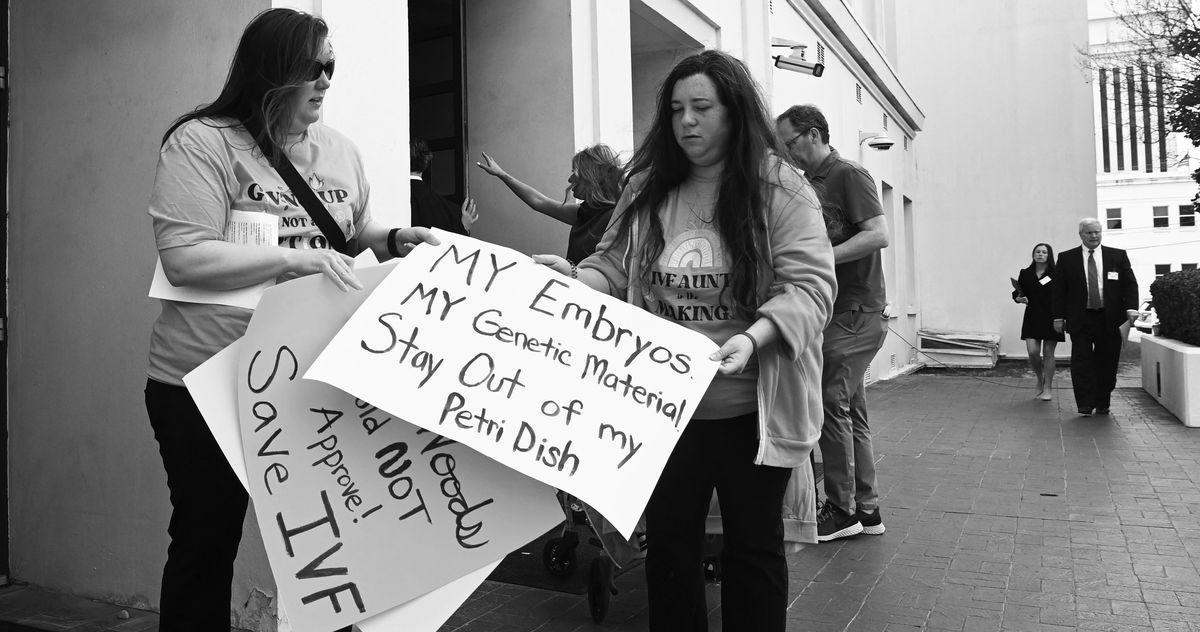 GVNG UP
NOT A
IVF AUNT
in the
MAKING
MY Embryos.
MY Genetic Material!
Stay Out of my
Petri Dish
Woods
NOT
Approve!
Save IVF